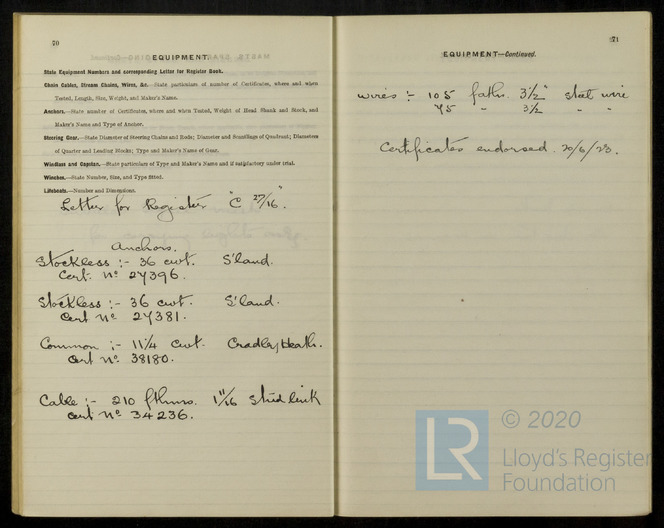 70
EQUIPMENT.
State Equipment Numbers and corresponding Letter for Register Book.
Chain Cables, Stream Chains, Wires, &c.—State particulars of number of Certificates, where and when
Tested, Length, Size, Weight, and Maker's Name.
Anchors.—State number of Certificates, where and when Tested, Weight of Head Shank and Stock, and
Maker's Name and Type of Anchor.
Steering Gear.—State Diameter of Steering Chains and Rods; Diameter and Scantlings of Quadrant; Diameters
of Quarter and Leading Blocks; Type and Maker's Name of Gear.
Windlass and Capstan.—State particulars of Type and Maker's Name and if satisfactory under trial.
Winches.—State Number, Size, and Type fitted.
Lifeboats.—Number and Dimensions.
Letter for Register "C 27/16".
Anchors.
Stockless :- 36 cwt. S'land.
Cert. No 27396.
Stockless :- 36 cwt. S'land.
Cert No 27381.
Common :- 11 1/4 cwt. Cradley Heath.
Cert No 38180.
Cable :- 210 fthms. 1 11/16 Stud link
Cert No 34236.
71
EQUIPMENT—Continued.
Wires :- 105 faths. 3 1/2" steel wire
75 " 3 1/2 " "
Certificates endorsed. 20/6/23.
© 2020
LR
Lloyd's Register
Foundation